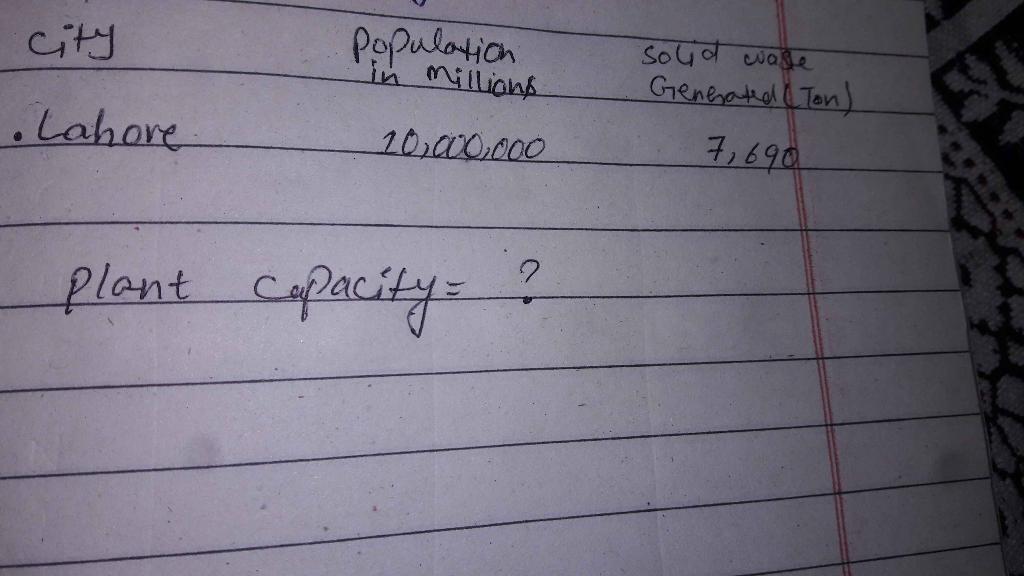 City Population in millions Solid waste Generated (Ton)
. Lahore 10,000,000 7,690
Plant capacity = ?